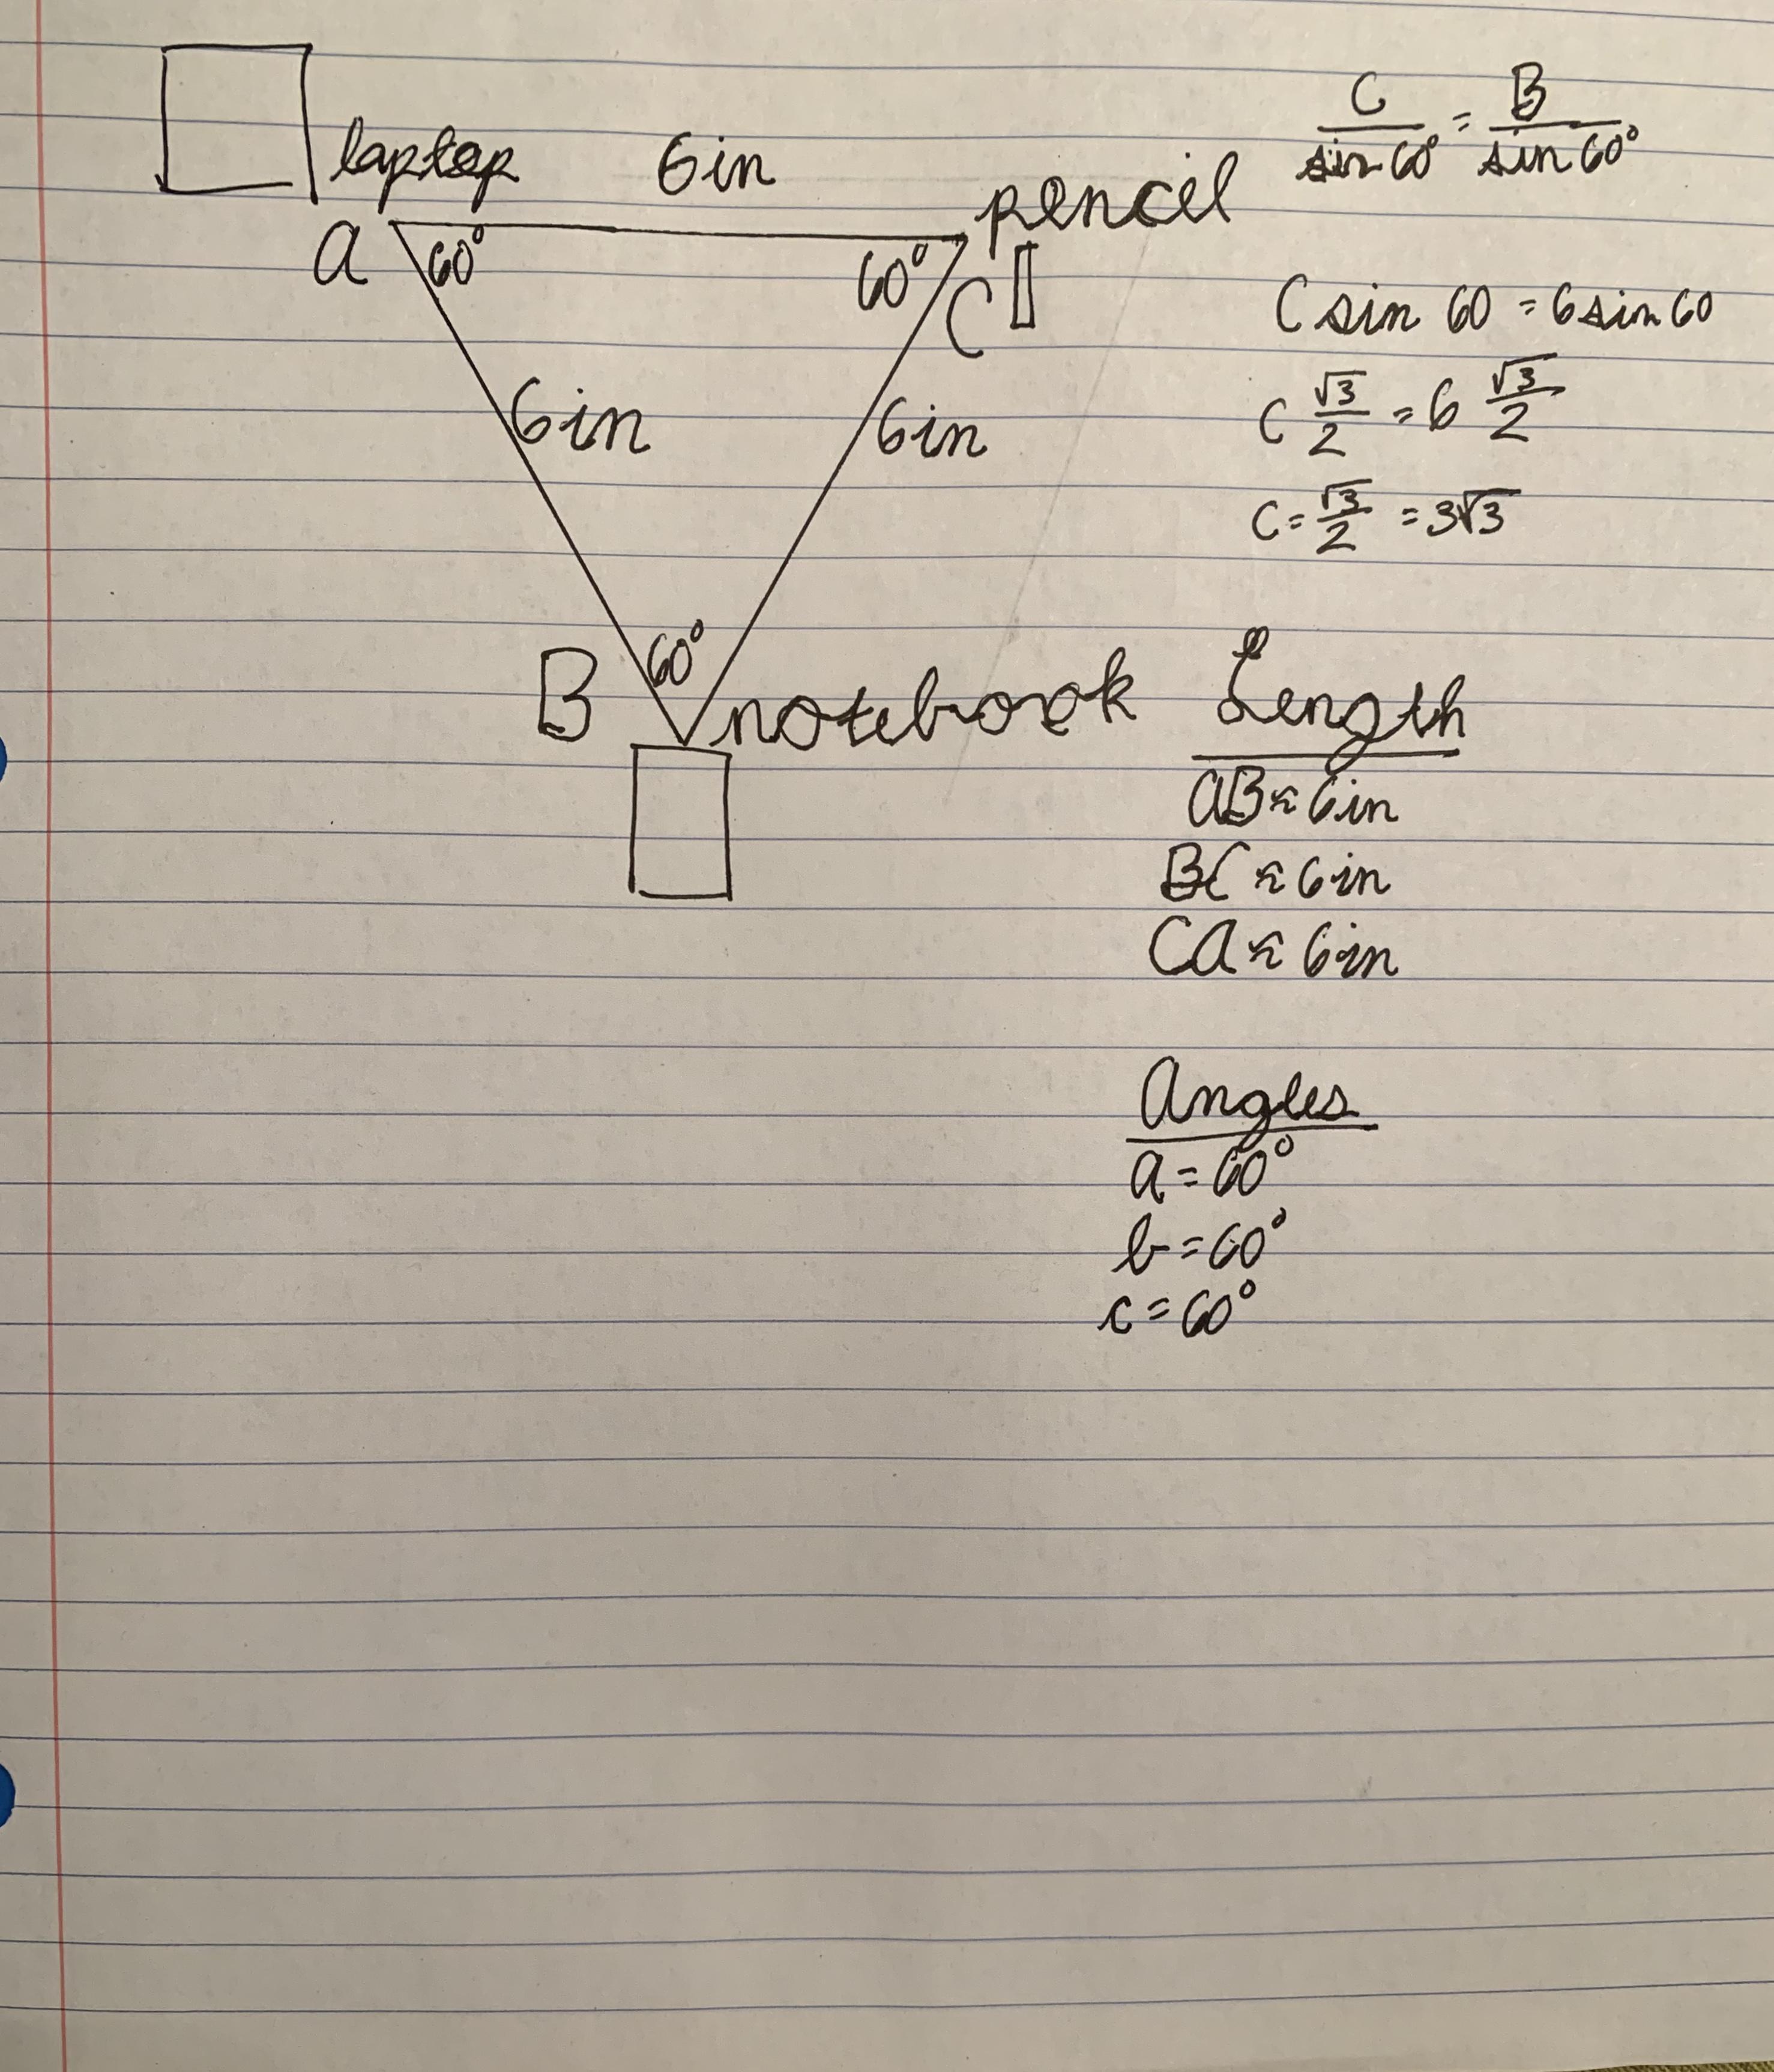 laptop 6in pencil
A 60° 60° C
6in 6in
60°
B notebook
C/sin 60° = B/sin 60°
C sin 60 = 6 sin 60
C √3/2 = 6 √3/2
C = √3/2 = 3√3
Length
AB ≈ 6in
BC ≈ 6in
CA ≈ 6in
Angles
a = 60°
b = 60°
c = 60°